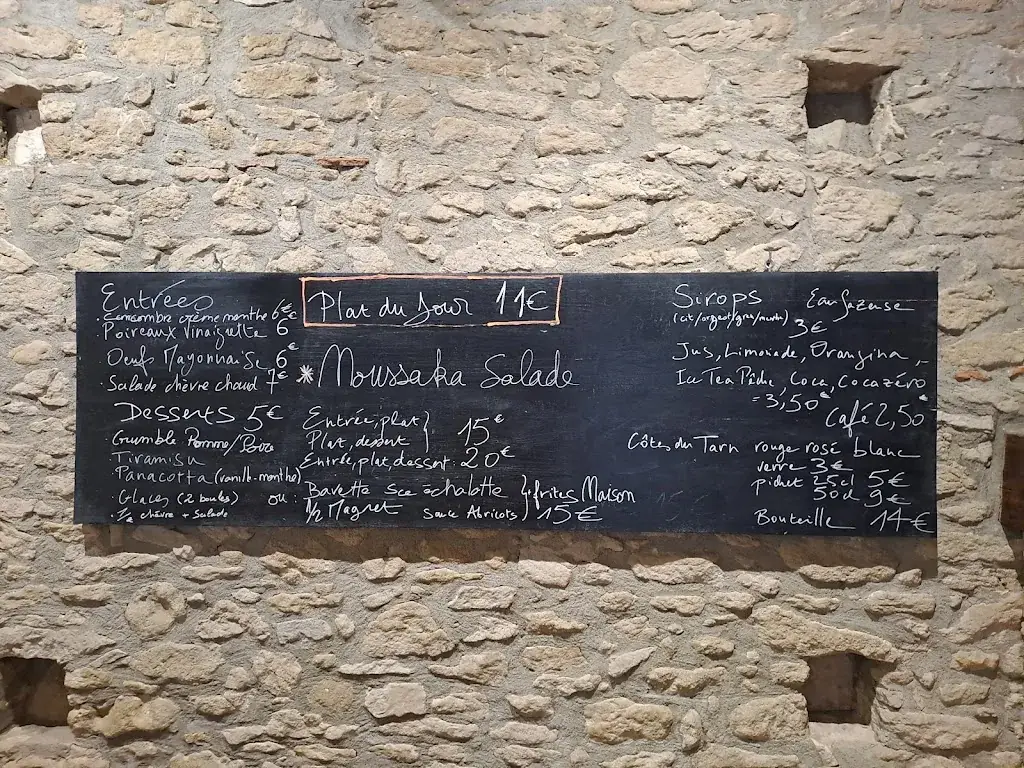 Entrées
Concombre crème menthe 6€
Poireaux Vinaigrette 6
Oeufs Mayonnaise 6€
Salade chèvre chaud 7€
Desserts 5€
Crumble Pomme/Poire
Tiramisu
Panacotta (vanille-menthe)
Glaces (2 boules)
1/2 chèvre + Salade
Plat du Jour 11€
* Moussaka Salade
Entrée, plat }
Plat, dessert } 15€
Entrée, plat, dessert 20€
ou Bavette Sce échalotte } frites Maison
1/2 Magret Sauce Abricots } 15€
Sirops Eau Gazeuse
(cit/orgeat/gre/menth)
3€
Jus, Limonade, Orangina,
Ice Tea Pêche, Coca, Cocazéro
= 3,50€
Café 2,50
Côtes du Tarn rouge rosé blanc
verre 3€
pichet 25cl 5€
50cl 9€
Bouteille 14€